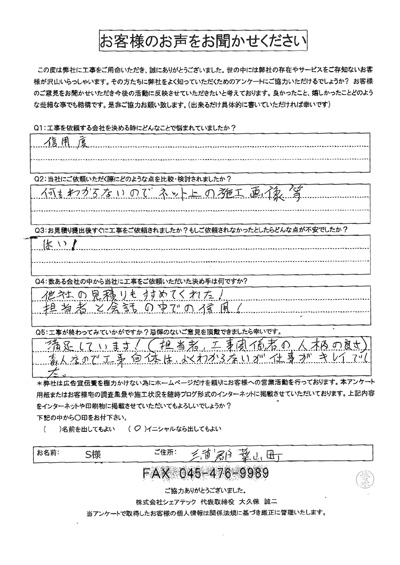 お客様のお声をお聞かせください
この度は弊社に工事をご用命いただき、誠にありがとうございました。世の中には弊社の存在やサービスをご存知ないお客
様が沢山いらっしゃいます。その方たちに弊社をよく知っていただくためのアンケートにご協力いただけるでしょうか？ お客様
のご意見をお聞かせいただき今後の活動に反映させていただきたいと考えております。良かったこと、嬉しかったことどのよう
な些細な事でも結構です。是非ご協力お願い致します。（出来るだけ具体的に書いていただければ幸いです）
Q1:工事を依頼する会社を決める時にどんなことで悩まれていましたか？
信用度
Q2:当社にご依頼いただく際にどのような点を比較・検討されましたか？
何もわからないのでネット上の施工画像等
Q3:お見積り提出後すぐに工事をご依頼されましたか？もしご依頼されなかったとしたらどんな点が不安でしたか？
はい！
Q4:数ある会社の中から当社に工事をご依頼いただいた決め手は何ですか？
他社の見積りもすすめてくれた！
担当者と会話の中での信用！
Q5:工事が終わってみていかがですか？忌憚のないご意見を頂戴できましたら幸いです。
満足しています！（担当者、工事関係者の人柄の良さ）
素人なので工事自体は、よくわからないが仕事がキレイでし
た。
＊弊社は広告宣伝費を極力かけない為にホームページだけを頼りお客様への営業活動を行っております。本アンケート
用紙またはお客様宅の調査風景や施工状況を随時ブログ形式のインターネットに掲載させていただいております。上記内容
をインターネットや印刷物に掲載させていただいてもよろしいでしょうか？
下記の中から〇印をお付け下さい。
（　）名前を出してもよい （〇）イニシャルなら出してもよい
お名前： S様 ご住所： 三浦郡葉山町
FAX 045-476-9989
ご協力ありがとうございました。
株式会社シェアテック 代表取締役 大久保 誠二
当アンケートで取得したお客様の個人情報は関係法規に基づき厳正に管理いたします。